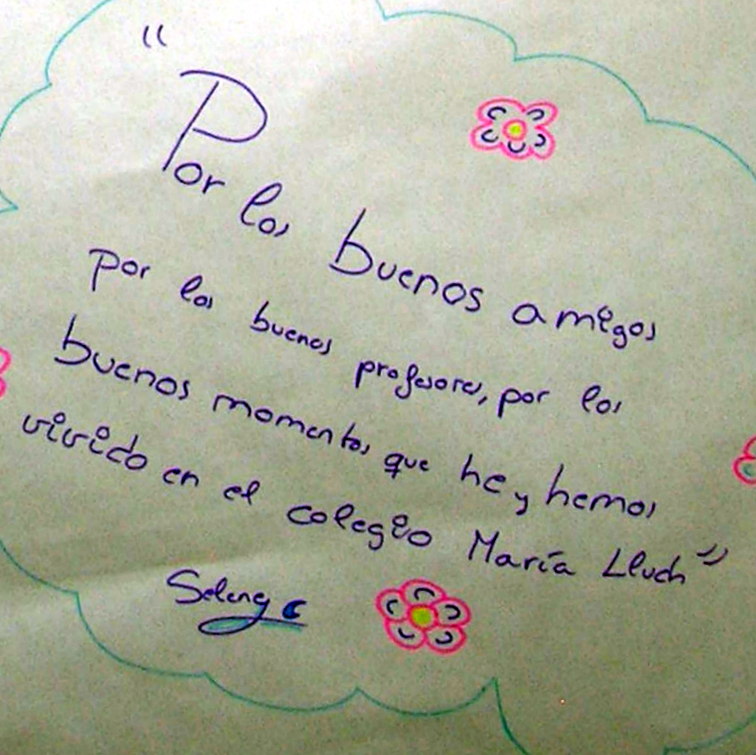 "Por los buenos amigos
por los buenos profesores, por los
buenos momentos que he y hemos
vivido en el colegio María Lluch"